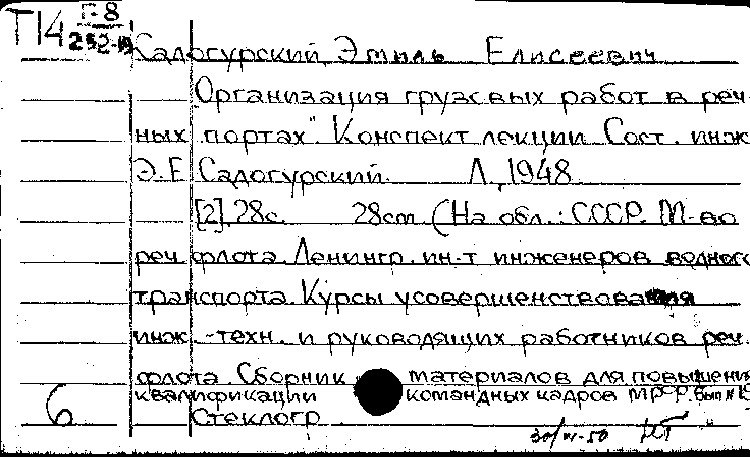 Т14 Г-8
252-19
Садогурский, Эмиль Елисеевич
Организация грузовых работ в реч-
ных портах". Конспект лекции Сост. инж
Э.Е. Садогурский. Л., 1948
[2], 28с. 28cm (На обл.: СССР. М-во
реч. флота. Ленингр. ин-т инженеров водного
транспорта. Курсы усовершенствования
инж.-техн. и руководящих работников реч.
флота. Сборник материалов для повышени
квалификации командных кадров МРФ. Вып №
Стеклогр.
6